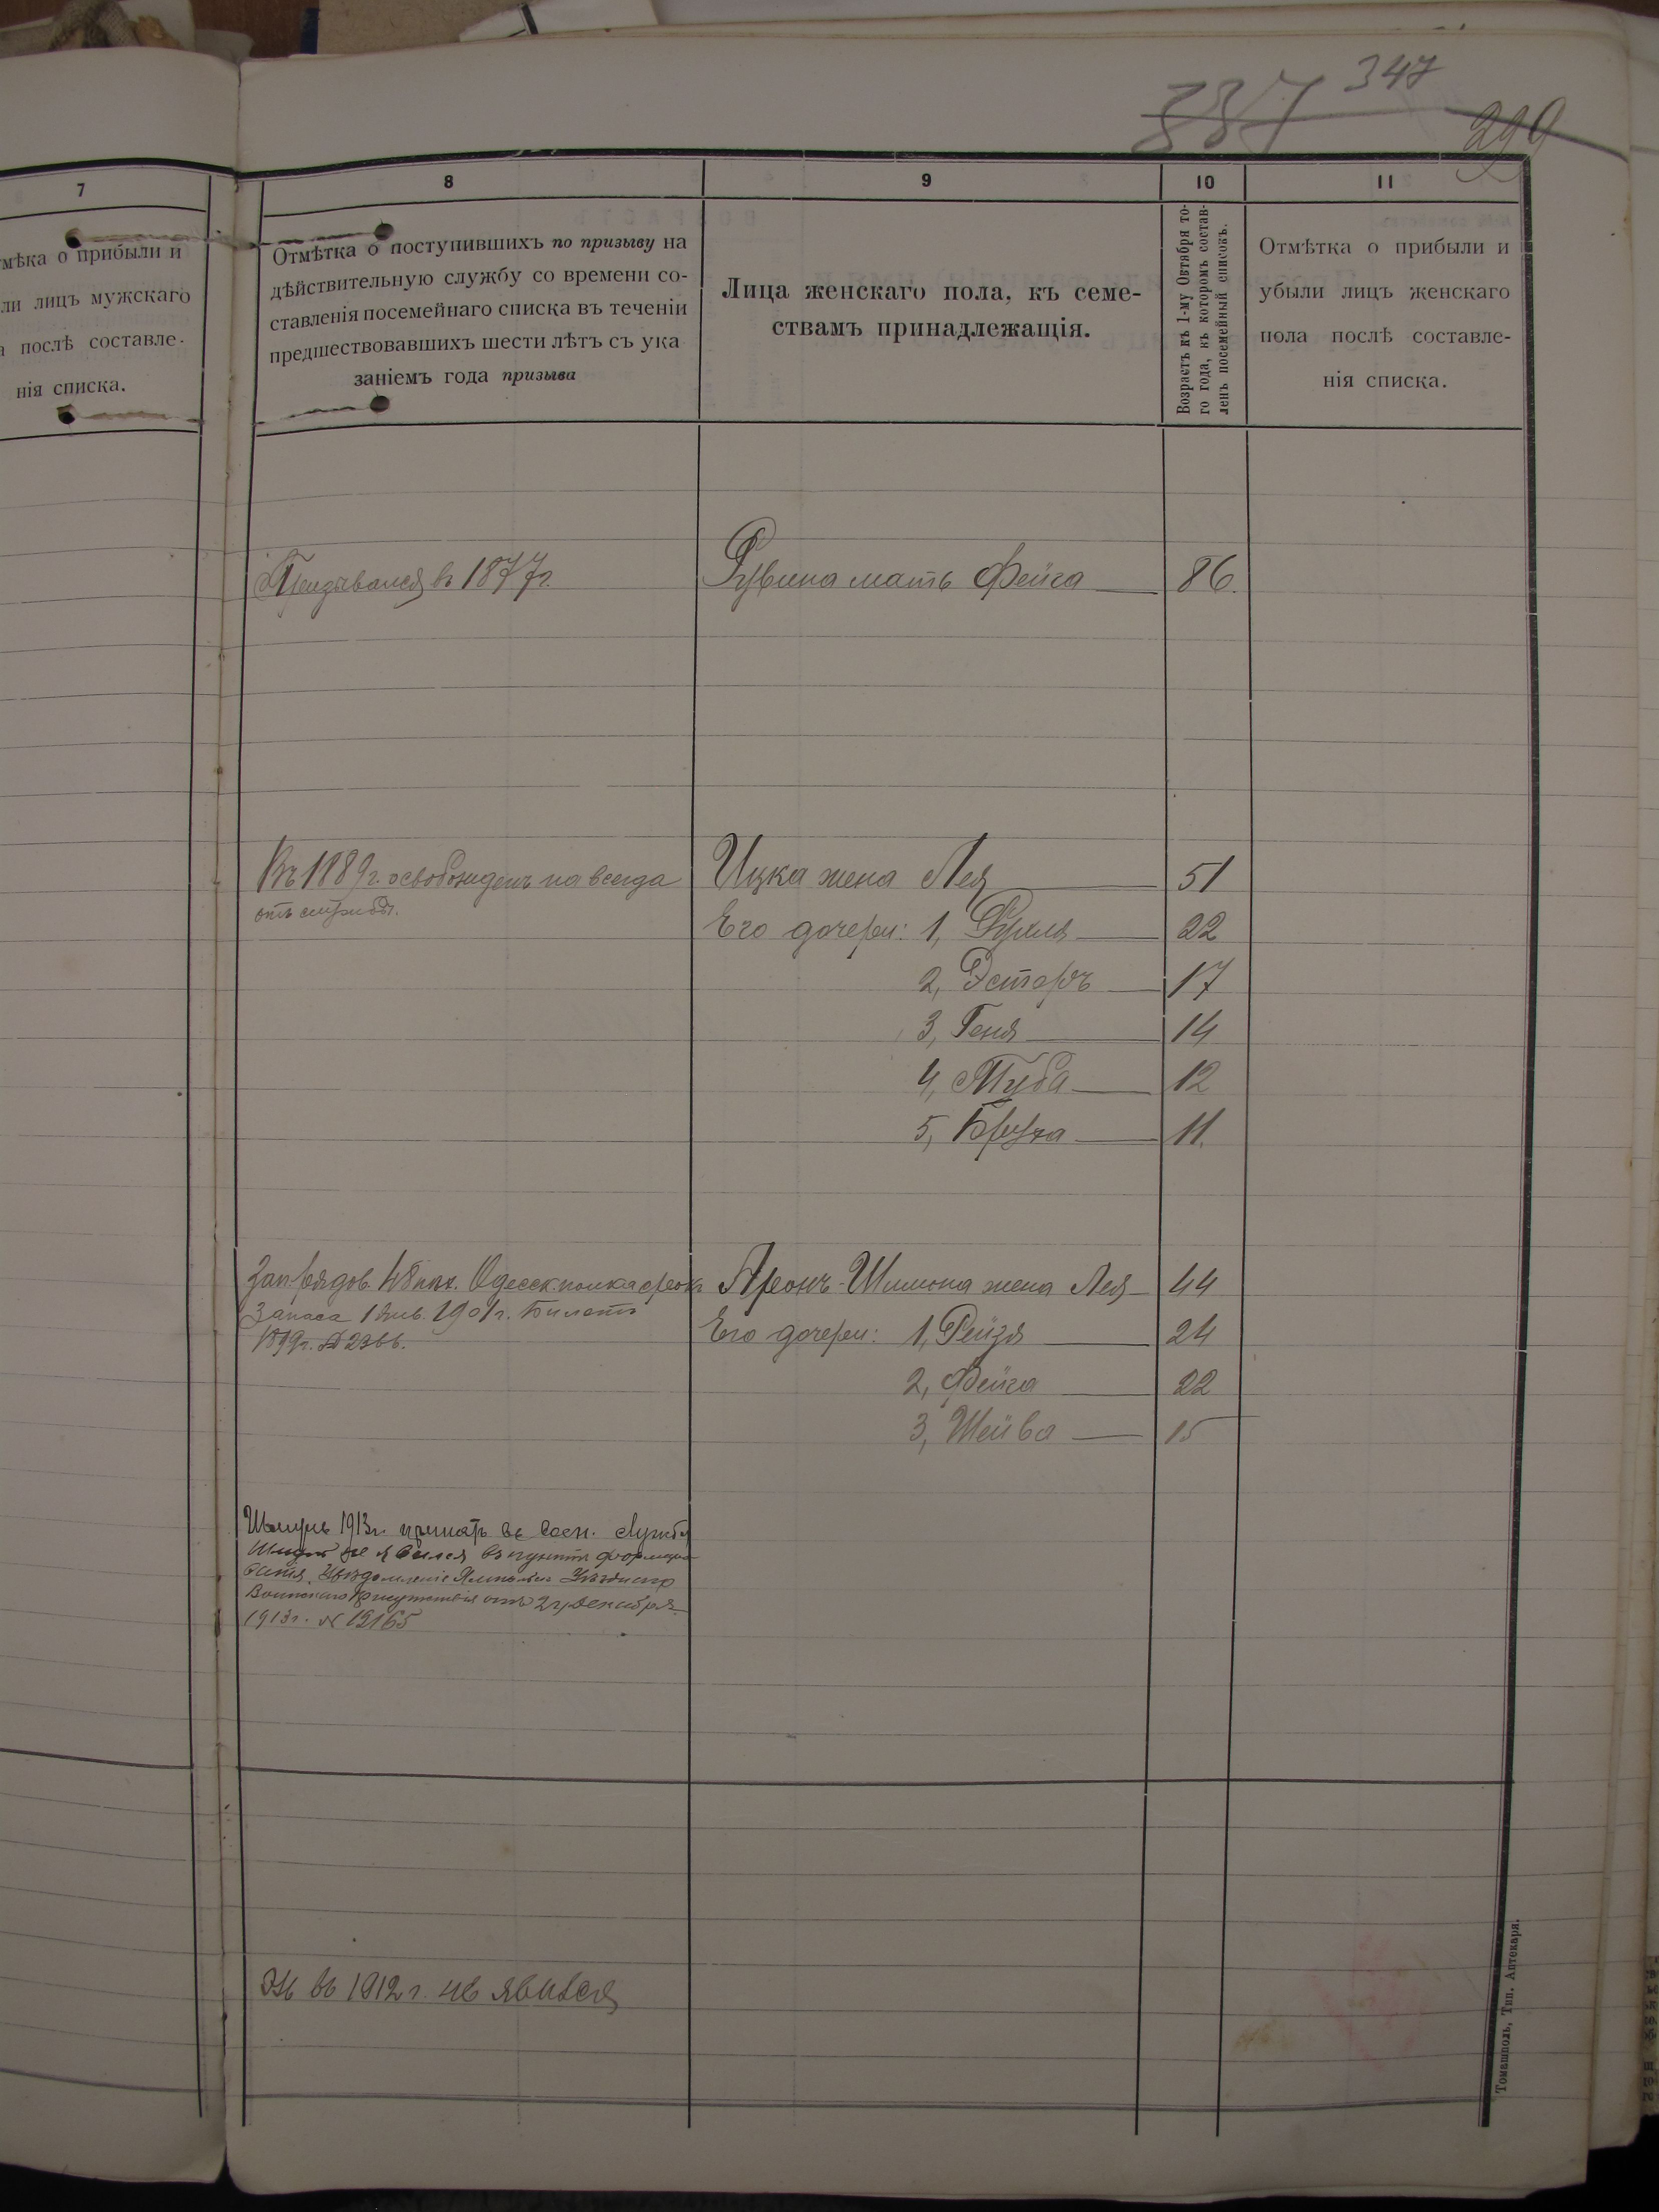 337 347
299
7
мѣка о прибыли и
ли лицъ мужскаго
а послѣ составле-
нія списка.
8
Отмѣтка о поступившихъ по призыву на
дѣйствительную службу со времени со-
ставленія посемейнаго списка въ теченіи
предшествовавшихъ шести лѣтъ съ ука
заніемъ года призыва
9
Лица женскаго пола, къ семе-
ствамъ принадлежащія.
10
Возрастъ къ 1-му Октября то-
го года, къ которомъ состав-
ленъ посемейный списокъ.
11
Отмѣтка о прибыли и
убыли лицъ женскаго
пола послѣ составле-
нія списка.
Призывался въ 1877г.
Рувина мать Фейга 86.
Въ 1889г. освобожденъ на всегда
отъ службы.
Ицка жена Лея 51
Его дочери: 1, Рухля 22
2, Эстеръ 17
3, Геня 14
4, Туба 12
5, Бруха 11.
Зап. рядов. 48 пѣх. Одесск. полка срокъ
Запаса 1 Янв. 1901г. Билетъ
№ 2366.
Аронъ-Шимона жена Лея 44
Его дочери: 1, Рейзя 24
2, Фейга 22
3, Шейва 15
Шмуль 1913г. принятъ въ воен. службу
не явился въ пунктъ формиро
ванія. Увѣдомленіе Уѣзднаго
Воинскаго Присутствія отъ 24 Декабря
1913г. № 12165
въ 1912г. не явился
Томашполь, Тип. Аптекаря.